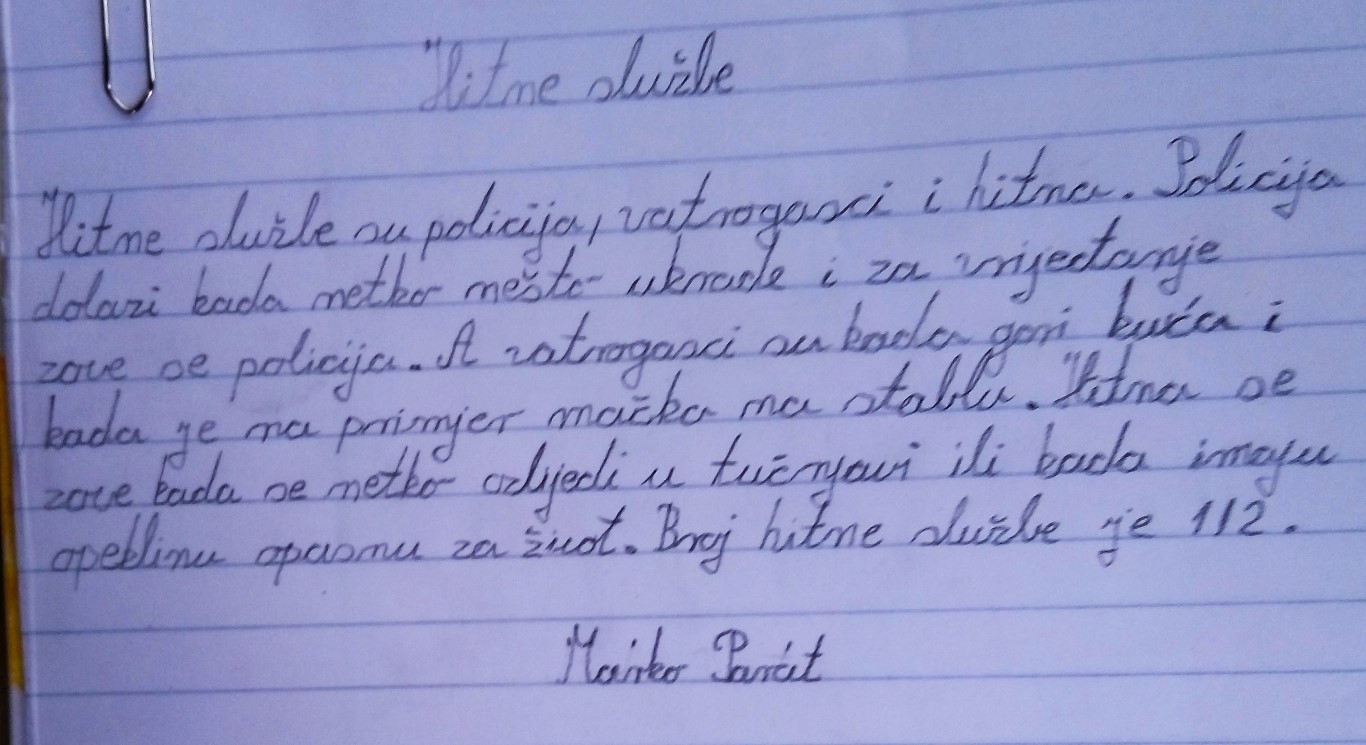 Hitne službe
Hitne službe su policija, vatrogasci i hitna. Policija
dolazi kada netko nešto ukrade i za vrijeđanje
zove se policija. A vatrogasci su kada gori kuća i
kada je na primjer mačka na stablu. Hitna se
zove kada se netko ozlijedi u tučnjavi ili kada imaju
opeklinu opasnu za život. Broj hitne službe je 112.
Marko